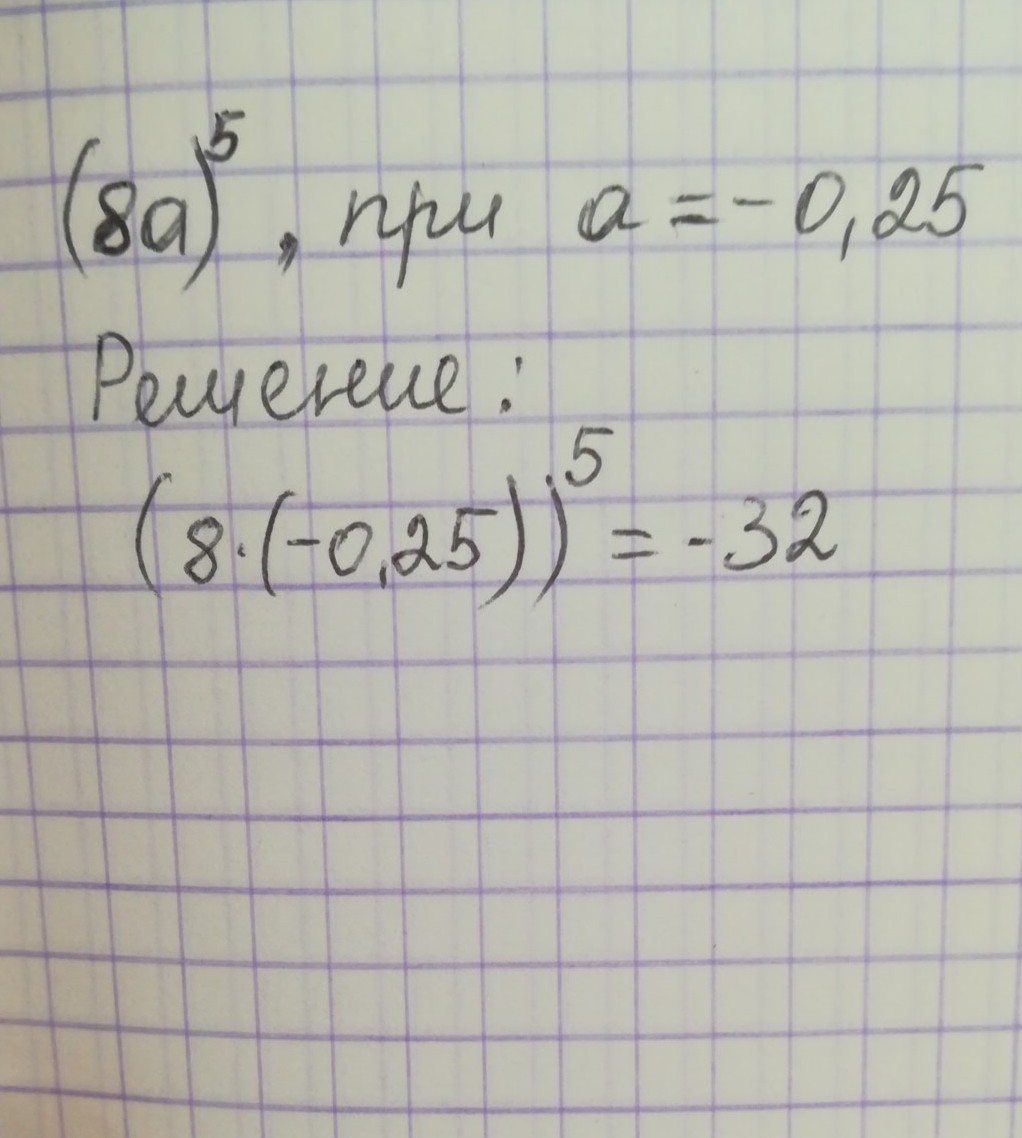 (8a)⁵, при a = - 0,25
Решение:
(8·(-0,25))⁵ = -32